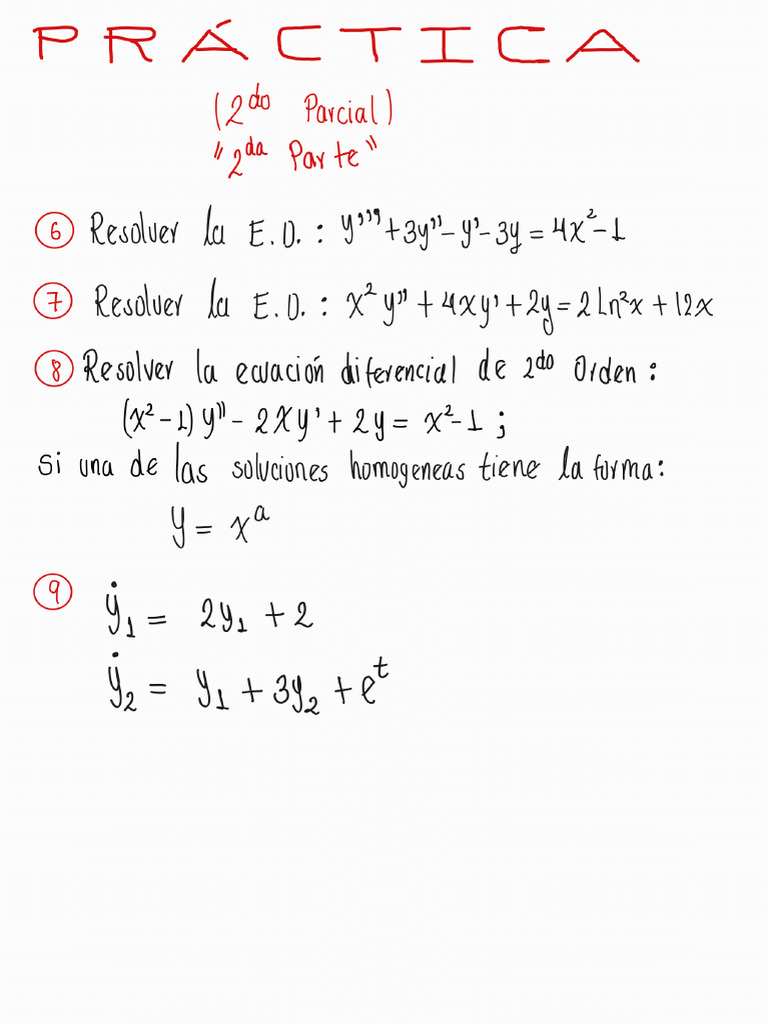 PRÁCTICA
(2do Parcial)
"2da Parte"
6 Resolver la E.D.: y''' + 3y'' - y' - 3y = 4x² - 1
7 Resolver la E.D.: x² y'' + 4xy' + 2y = 2 Ln²x + 12x
8 Resolver la ecuación diferencial de 2do Orden:
(x² - 1) y'' - 2xy' + 2y = x² - 1 ;
si una de las soluciones homogeneas tiene la forma:
y = xᵃ
9
ẏ₁ = 2y₁ + 2
ẏ₂ = y₁ + 3y₂ + eᵗ